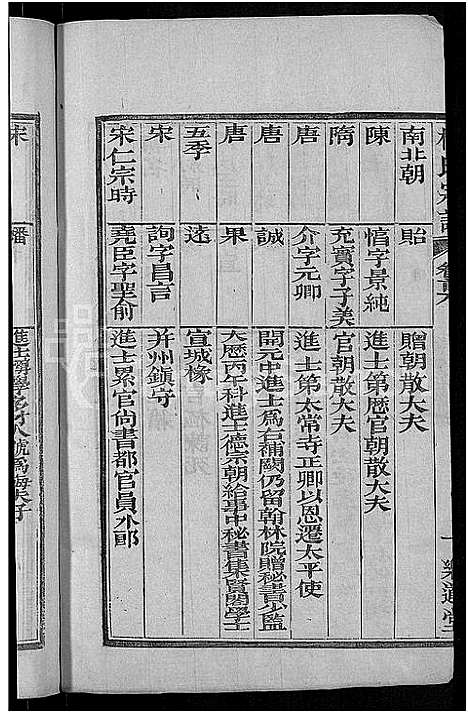 南北朝 貽 贈朝散大夫
陳 愭字景純 進士第歴官朝散大夫
隋 充實字子美 官朝散大夫
唐 介字元卿 進士第太常寺正卿以恩遷太平使
唐 誠 開元中進士為右補闕仍留翰林院贈秘書少監
唐 果 大歴丙午科進士德宗朝給事中秘書集賢閣學士
五季 遠 宣城椽
宋 詢字昌言 并州鎮守
宋仁宗時 堯臣字聖俞 進士累官尚書都官員外郎
宋